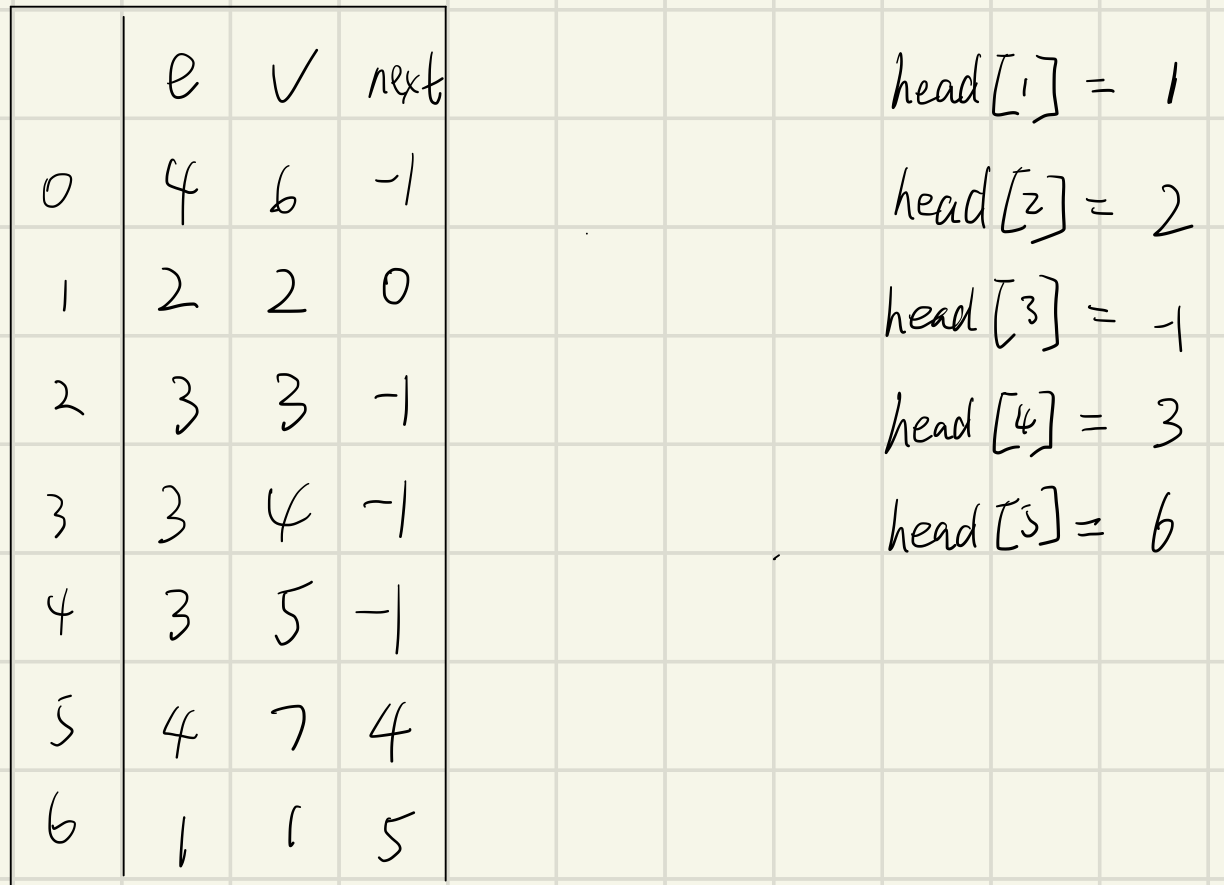 e v next
0 4 6 -1
1 2 2 0
2 3 3 -1
3 3 4 -1
4 3 5 -1
5 4 7 4
6 1 1 5
head[1] = 1
head[2] = 2
head[3] = -1
head[4] = 3
head[5] = 6